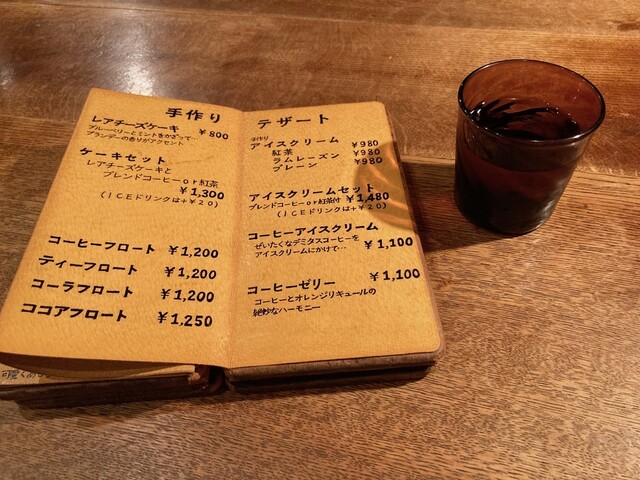 手作り
レアチーズケーキ ￥800
ブルーベリーとミントをかざって…
ブランデーの香りがアクセント
ケーキセット
レアチーズケーキと
ブレンドコーヒーor紅茶
￥1,300
(ICEドリンクは+￥20)
コーヒーフロート ￥1,200
ティーフロート ￥1,200
コーラフロート ￥1,200
ココアフロート ￥1,250
デザート
手作り
アイスクリーム ￥980
紅茶 ￥980
ラムレーズン ￥980
プレーン
アイスクリームセット
ブレンドコーヒーor紅茶付 ￥1,480
(ICEドリンクは+￥20)
コーヒーアイスクリーム
ぜいたくなデミタスコーヒーを ￥1,100
アイスクリームにかけて…
コーヒーゼリー ￥1,100
コーヒーとオレンジリキュールの
絶妙なハーモニー